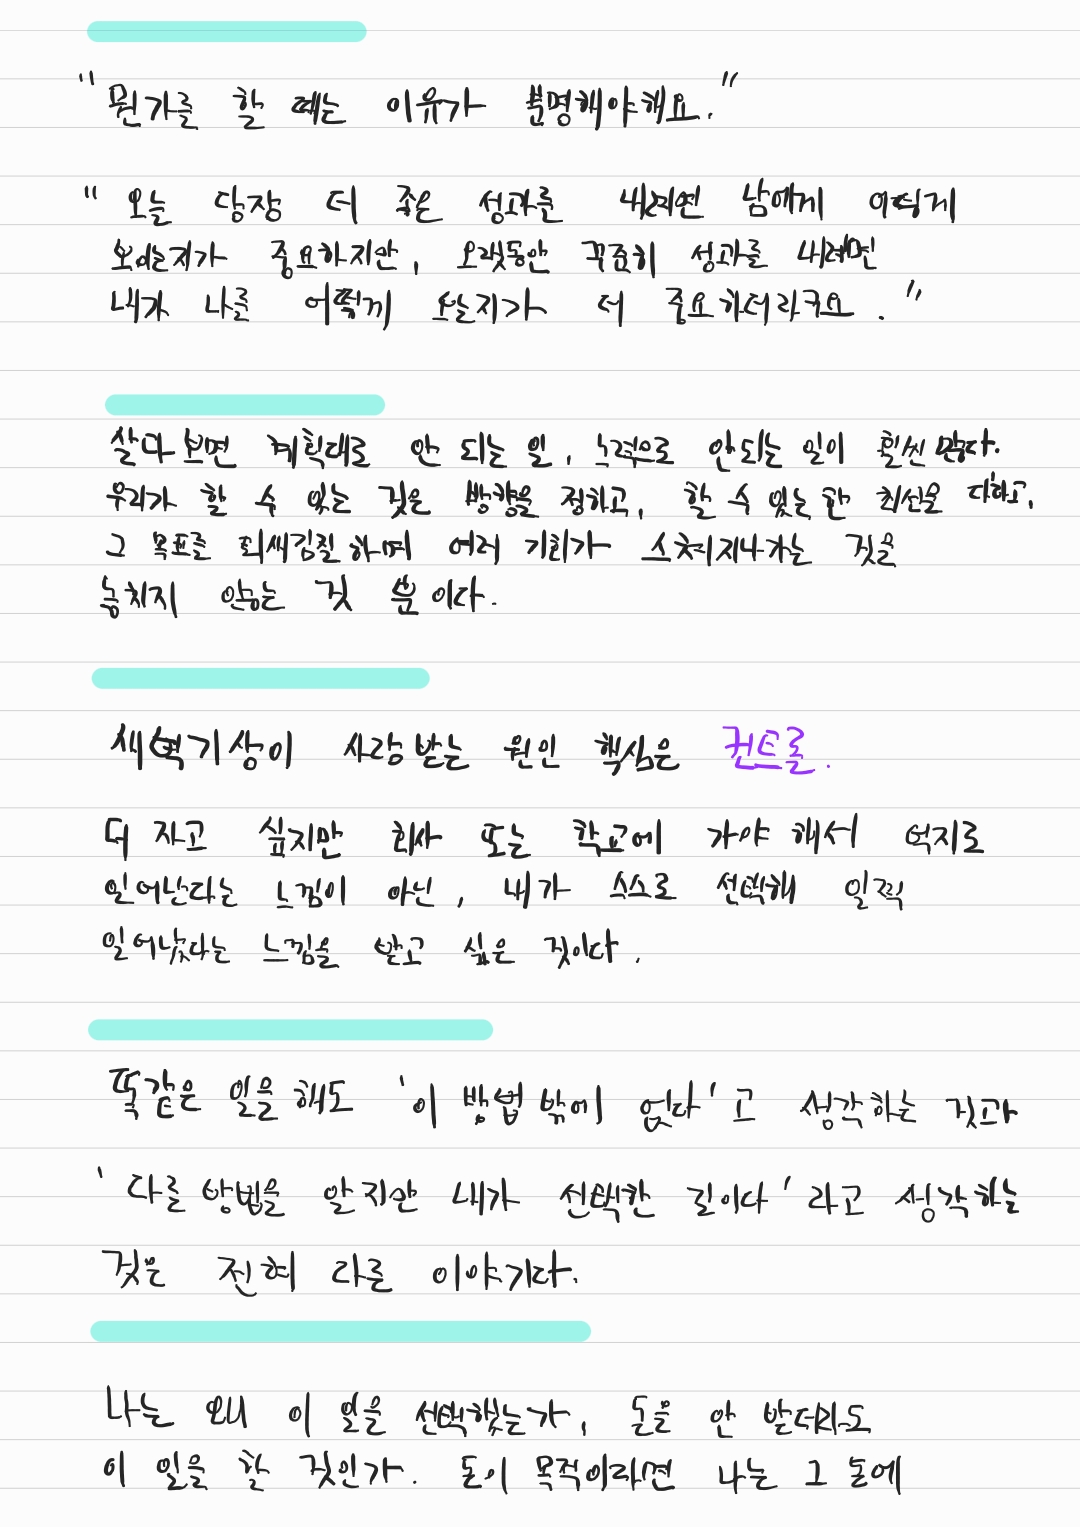 "뭔가를 할 때는 이유가 분명해야해요."
"오늘 당장 더 좋은 성과를 내려면 남에게 어떻게
보이는지가 중요하지만, 오랫동안 꾸준히 성과를 내려면
내가 나를 어떻게 보는지가 더 중요하더라구요."
살다보면 계획대로 안 되는 일, 노력으로 안되는 일이 훨씬 많다.
우리가 할 수 있는 것은 방향을 정하고, 할 수 있는 한 최선을 다하고,
그 목표를 되새김질 하며 여러 기회가 스쳐지나가는 것을
놓치지 않는 것 뿐이다.
새벽기상이 사랑받는 원인 핵심은 컨트롤.
더 자고 싶지만 회사 또는 학교에 가야 해서 억지로
일어난다는 느낌이 아닌, 내가 스스로 선택해 일찍
일어났다는 느낌을 받고 싶은 것이다.
똑같은 일을 해도 '이 방법 밖에 없다'고 생각하는 것과
'다른 방법을 알지만 내가 선택한 길이다'라고 생각하는
것은 전혀 다른 이야기다.
나는 왜 이 일을 선택했는가, 돈을 안 받더라도
이 일을 할 것인가. 돈이 목적이라면 나는 그 돈에